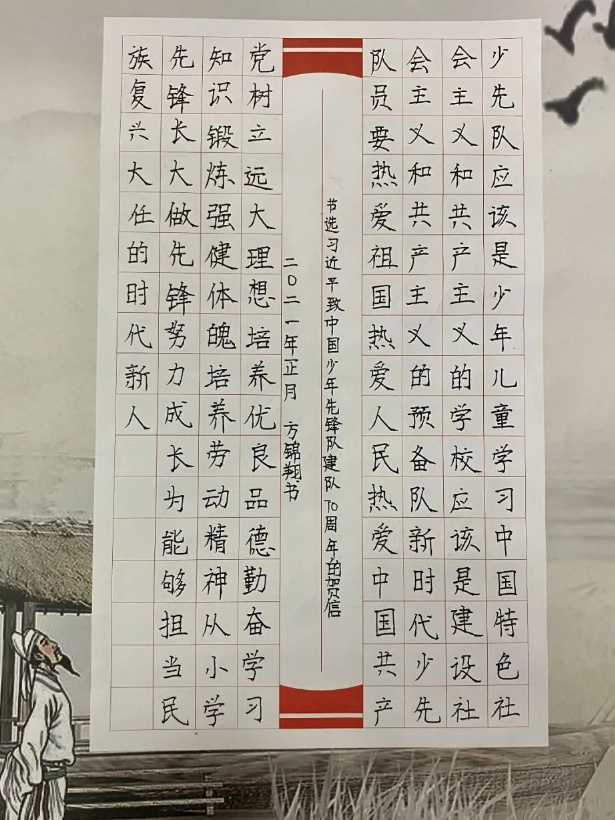 少先队应该是少年儿童学习中国特色社
会主义和共产主义的学校应该是建设社
会主义和共产主义的预备队新时代少先
队员要热爱祖国热爱人民热爱中国共产
节选习近平致中国少年先锋队建队70周年的贺信
二0二一年正月 方锦翔书
党树立远大理想培养优良品德勤奋学习
知识锻炼强健体魄培养劳动精神从小学
先锋长大做先锋努力成长为能够担当民
族复兴大任的时代新人